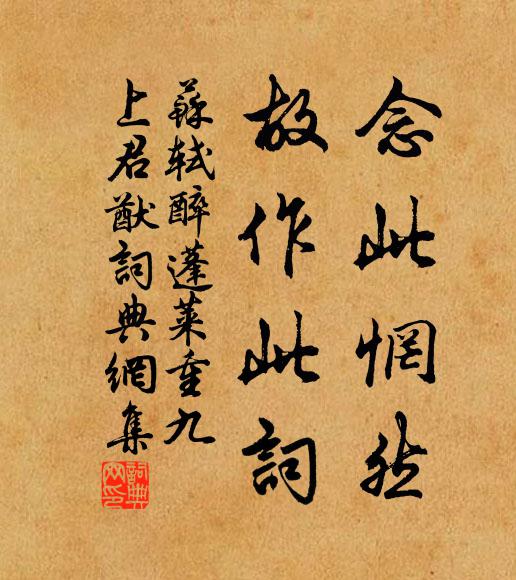 念此惘然
故作此詞
蘇軾醉蓬萊重九
上君猷詞典網集
詞典網印